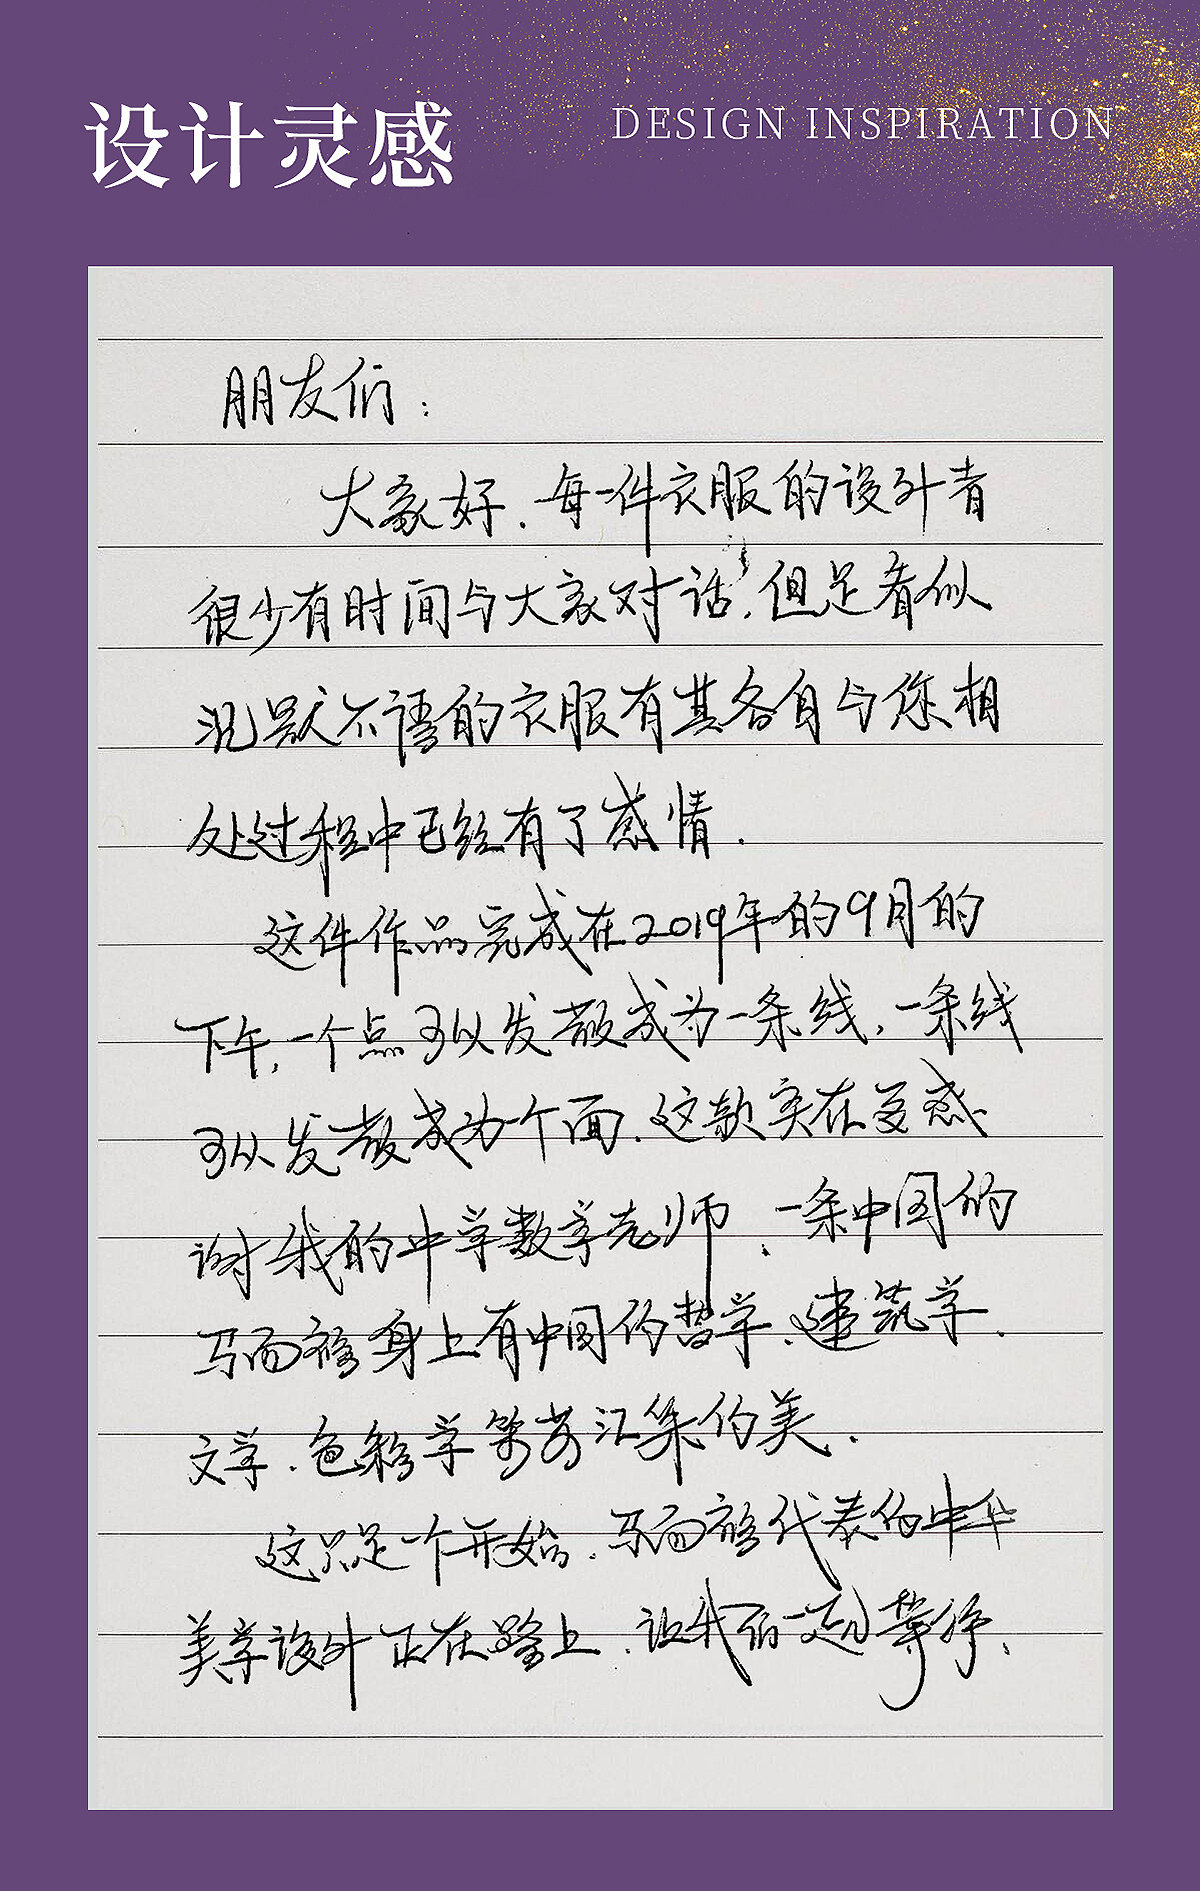 设计灵感
DESIGN INSPIRATION
朋友们：
大家好.每一件衣服的设计者
很少有时间与大家对话,但是看似
沉默不语的衣服有其各自与您相
处过程中已经有了感情.
这件作品完成在2019年的9月的
下午,一个点可以发散成为一条线,一条线
可以发散成为一个面.这款实在要感
谢我的中学数学老师、一条中国的
马面裙身上有中国的哲学、建筑学、
文学、色彩学等者汇集的美.
这只是一个开始.马面裙代表的中华
美学设计正在路上.让我们一起等待、